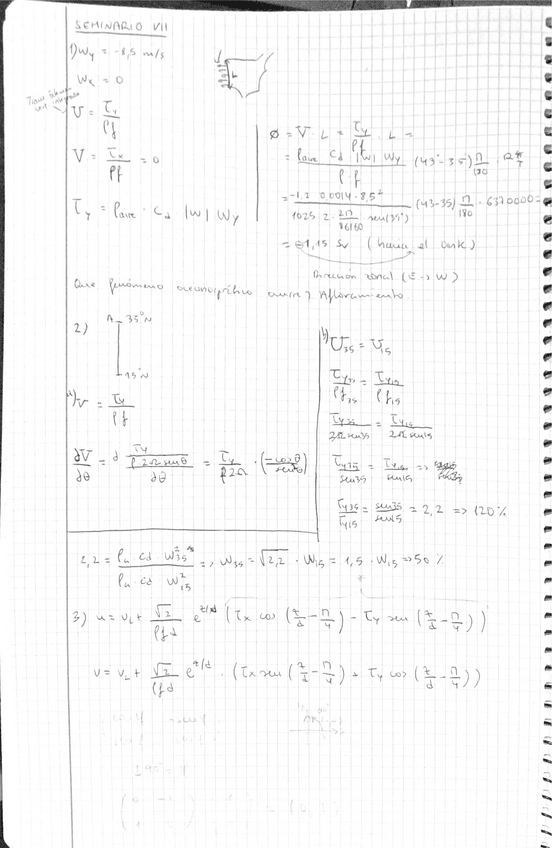 SEMINARIO VII
1) Wy = -8,5 m/s
Wx = 0
U = τy / ρf
V = τx / ρf = 0
τy = ρaire · Cd |W| Wy
Φ = V · L = τy / ρf · L =
= ρaire Cd |W| Wy / ρ · f (43° - 35°) π/180 ·
= -1,2 0,0014 · 8,5² / 1025 2 · 2π/86160 sen(35°) (43-35) π/180 · 6370000 =
= -1,15 Sv (hacia el oeste)
Dirección zonal (E -> W)
Que fenómeno oceanográfico ocurre? Afloramiento.
2)
A 35°N
15°N
a) V = τy / ρf
dV/dθ = d τy / ρ 2Ω senθ / dθ = τy / ρ2Ω · (-cosθ / sen²θ)
b) U35 = U15
τy35 / ρf35 = τy15 / ρf15
τy35 / 2Ω sen35 = τy15 / 2Ω sen15
τy35 / sen35 = τy15 / sen15 =>
τy35 / τy15 = sen35 / sen15 = 2,2 => 120%
2,2 = ρa cd W²35 / ρa cd W²15 => W35 = √2,2 · W15 = 1,5 · W15 => 50%
3) u = uL + √2 / ρfd e^z/d (τx cos (z/d - π/4) - τy sen (z/d - π/4))
v = vL + √2 / ρfd e^z/d · (τx sen (z/d - π/4) + τy cos (z/d - π/4))